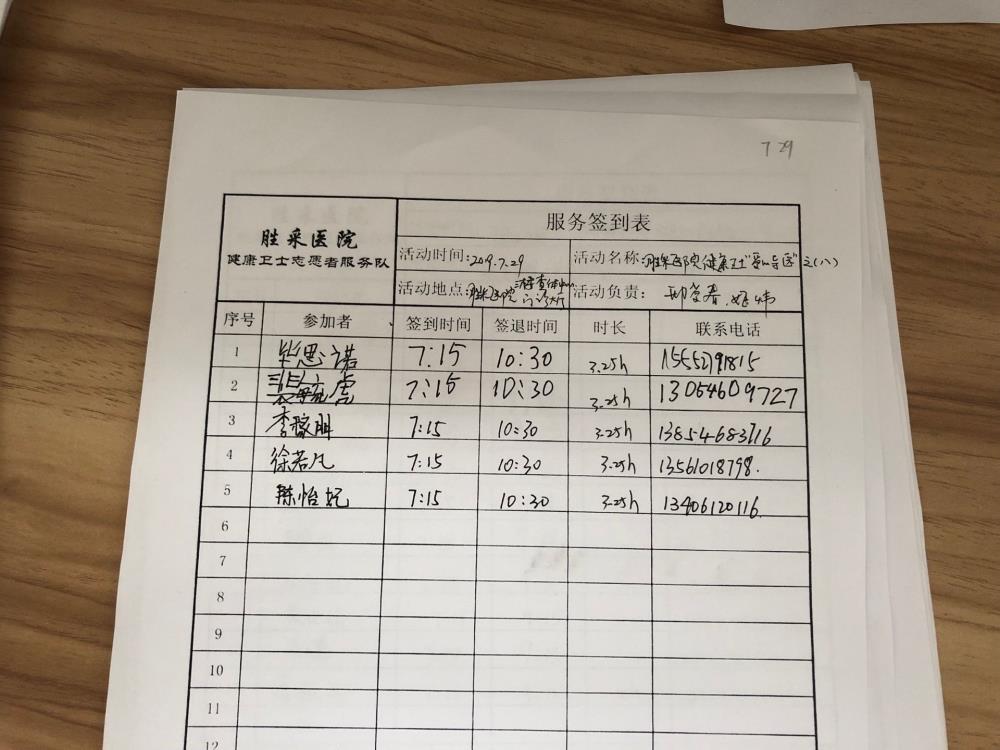 7 29
服务签到表
胜采医院
健康卫士志愿者服务队
活动时间:2019.7.29
活动名称:胜采医院健康卫士"爱心导医"之(八)
活动地点:胜采医院 门诊大厅
活动负责:
序号 参加者 签到时间 签退时间 时长 联系电话
1 毕思诺 7:15 10:30 3.25h 15552791815
2 7:15 10:30 3.25h 13054609727
3 李稼朋 7:15 10:30 3.25h 13854683716
4 徐若凡 7:15 10:30 3.25h 13561018798.
5 陈怡妃 7:15 10:30 3.25h 13406120116.
6
7
8
9
10
11
12